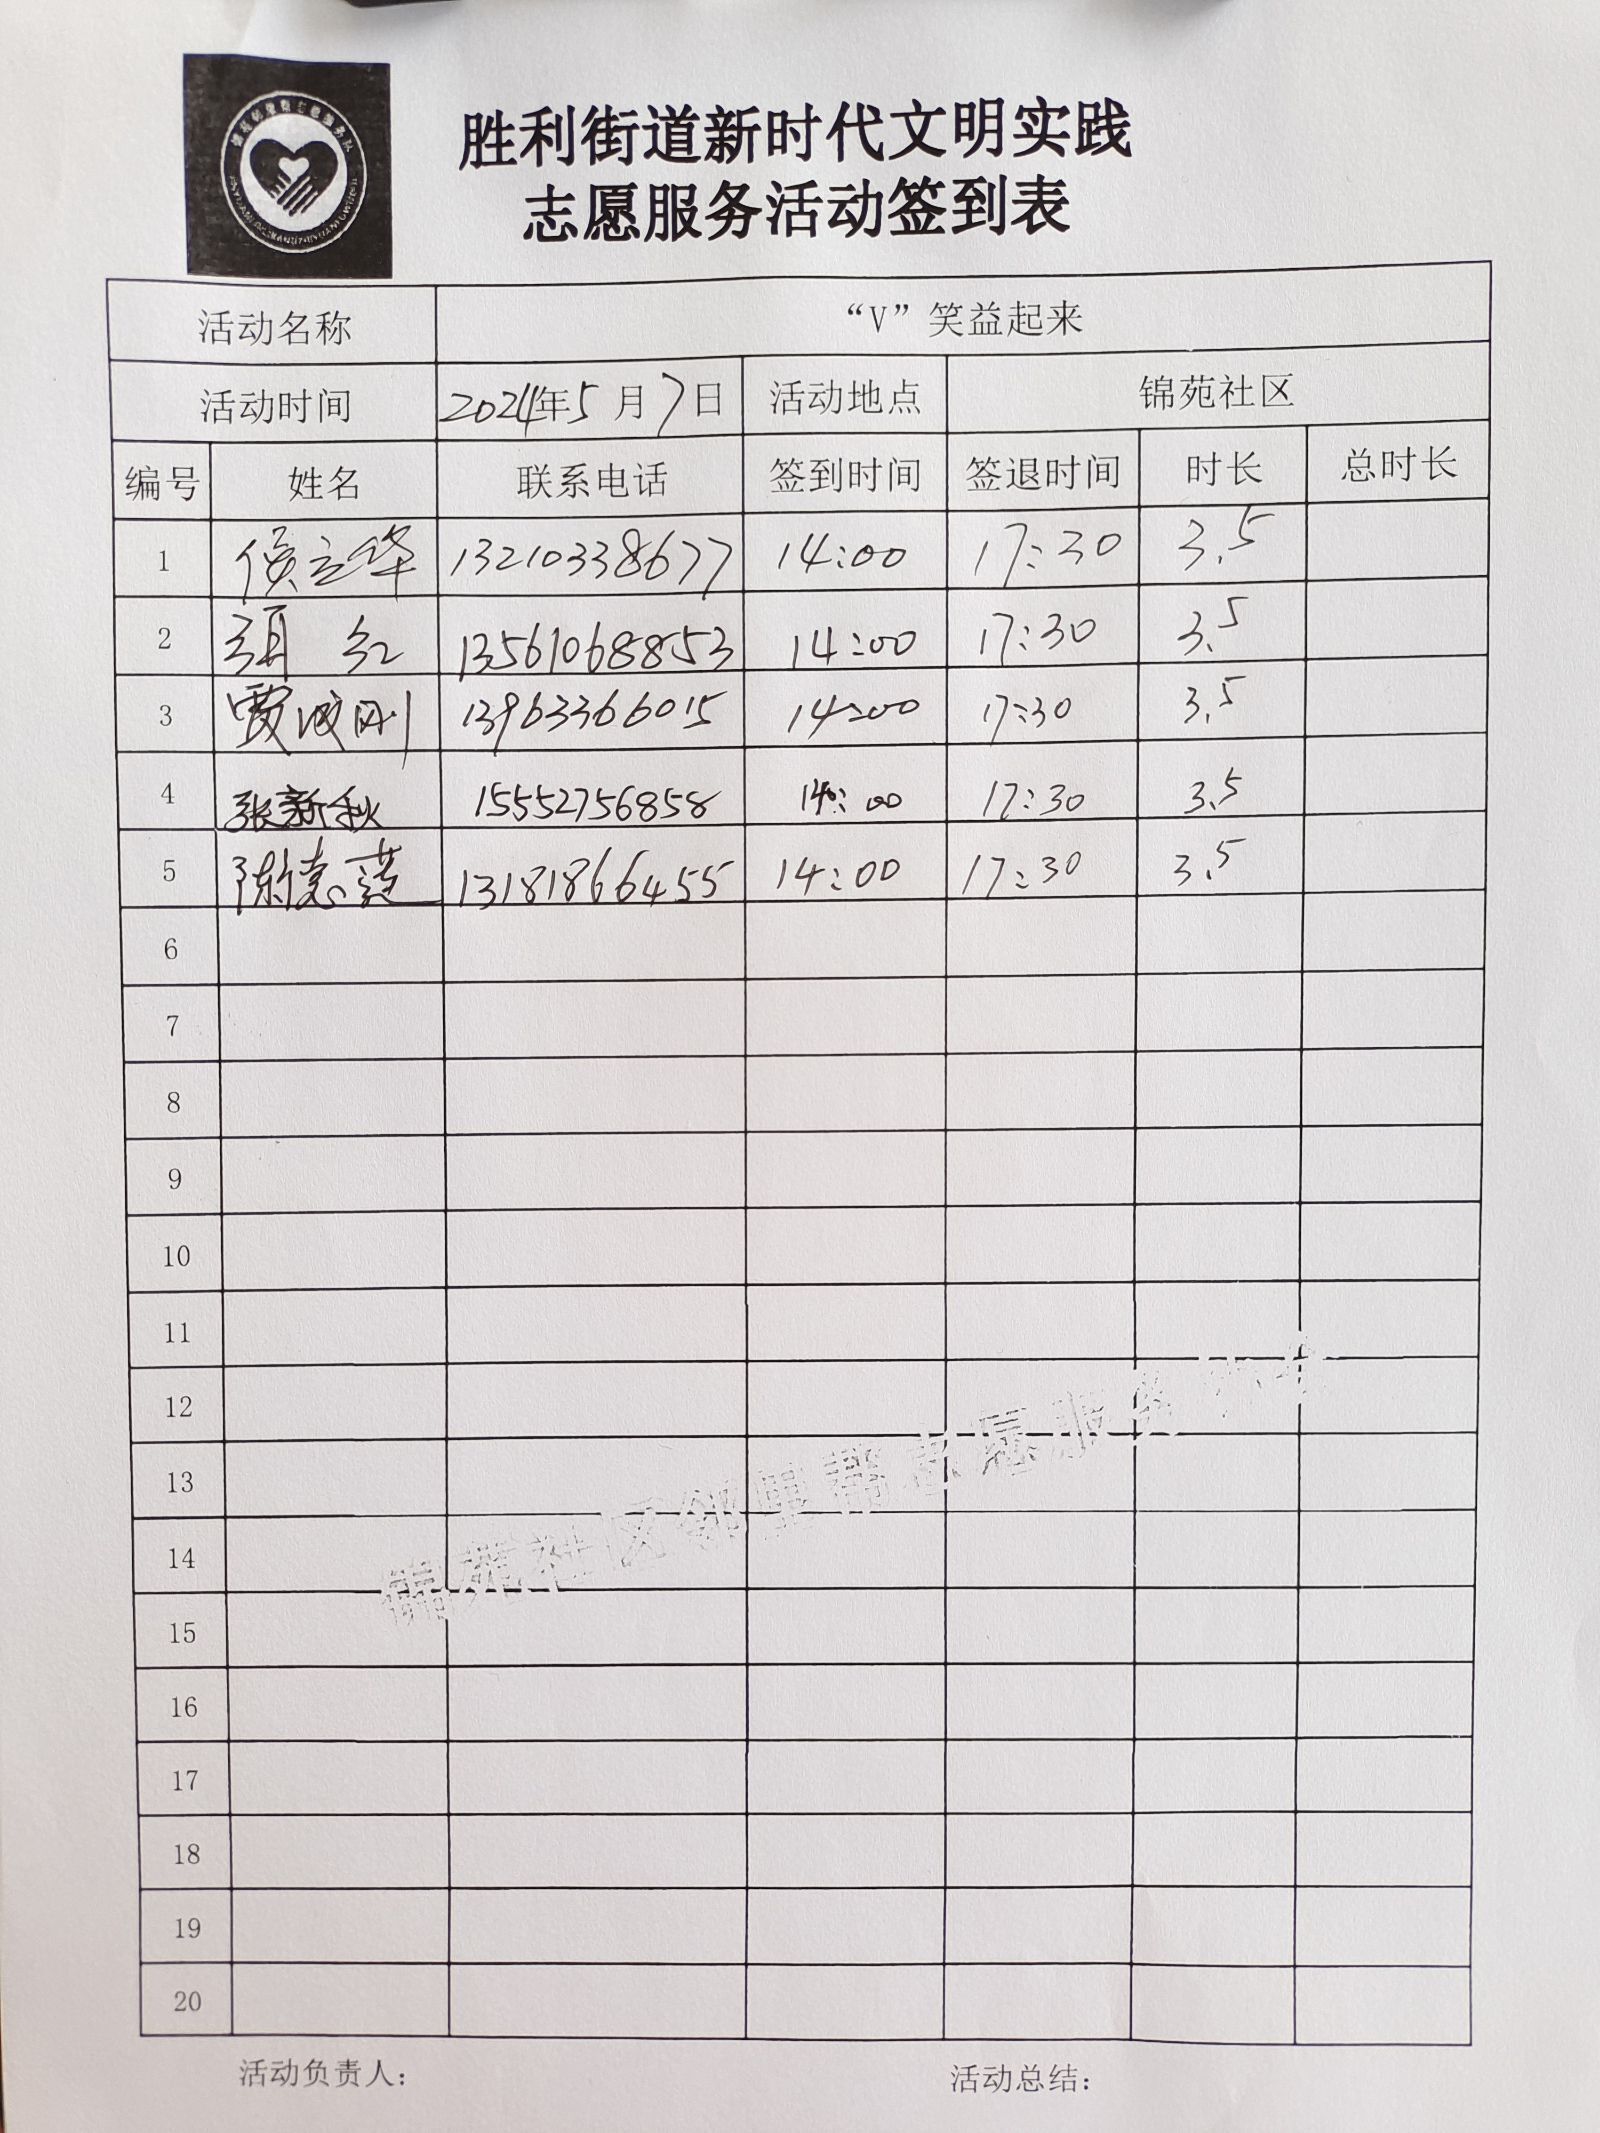 胜利街道新时代文明实践
志愿服务活动签到表
活动名称 “V”笑益起来
活动时间 2024年5月7日 活动地点 锦苑社区
编号 姓名 联系电话 签到时间 签退时间 时长 总时长
1 侯立华 13210338677 14:00 17:30 3.5
2 红 13561068853 14:00 17:30 3.5
3 贾 刚 13963366015 14:00 17:30 3.5
4 张新秋 15552756858 14:00 17:30 3.5
5 陈德莲 13181866455 14:00 17:30 3.5
6
7
8
9
10
11
12
13
14
15
16
17
18
19
20
锦苑社区邻里帮志愿服务
活动负责人：
活动总结：